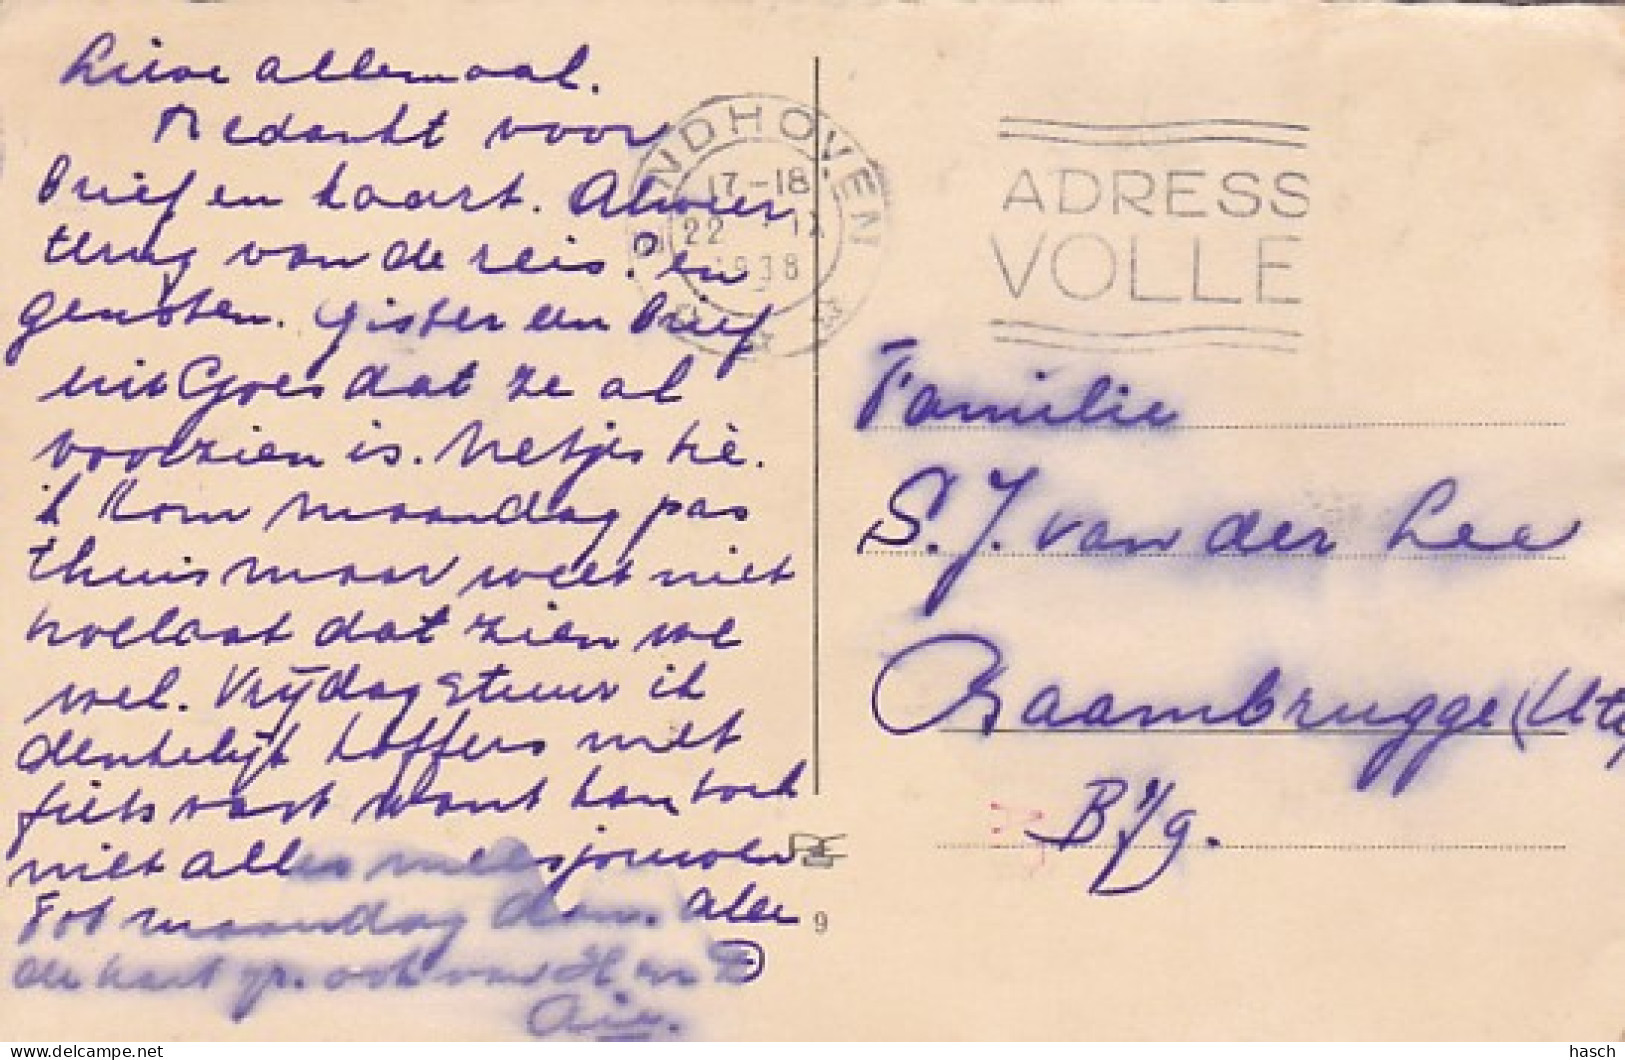 Lieve allemaal.
Bedankt voor
brief en kaart. Alweer
terug van de reis? en
genoten. Gister een brief
uit Goes dat ze al
voorzien is. Netjes hè.
ik kom maandag pas
thuis maar weet niet
hoelaat dat zien we
wel. Vrijdag stuur ik
denkelijk koffers met
fiets vast want kan toch
niet alles meesjouwen
Tot maandag dan. Alle
de hart gr. ook van H en
EINDHOVEN
17-18
22 IX
1938
ADRESS
VOLLE
Familie
S. J. van der Lee
Baambrugge (Utr
B/g.
9
hasch